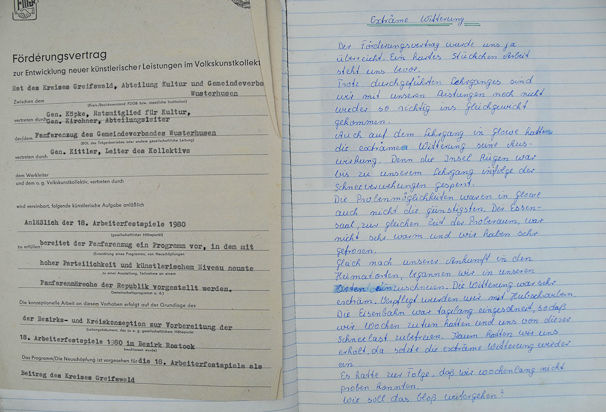 Förderungsvertrag
zur Entwicklung neuer künstlerischer Leistungen im Volkskunstkollekti
Rat des Kreises Greifswald, Abteilung Kultur und Gemeindeverba
Zwischen dem
Wusterhusen
Gen. Köpke, Ratsmitglied für Kultur,
vertreten durch Gen. Kirchner, Abteilungsleiter
Fanfarenzug des Gemeindeverbandes Wusterhusen
vertreten durch Gen. Kittler, Leiter des Kollektivs
dem Werkleiter
und dem o. g. Volkskunstkollektiv, vertreten durch
wird vereinbart, folgende künstlerische Aufgabe anläßlich
Anläßlich der 18. Arbeiterfestspiele 1980
(gesellschaftlicher Höhepunkt)
zu erfüllen bereitet der Fanfarenzug ein Programm vor, in dem mit
hoher Parteilichkeit und künstlerischem Niveau neuste
Fanfarenmärsche der Republik vorgestellt werden.
Die konzeptionelle Arbeit an diesem Vorhaben erfolgt auf der Grundlage des
der Bezirks- und Kreiskonzeption zur Vorbereitung der
18. Arbeiterfestspiele 1980 im Bezirk Rostock
Das Programm/Die Neuschöpfung ist vorgesehen für die 18. Arbeiterfestspiele als
Beitrag des Kreises Greifswald
Exträme Witterung
Der Förderungsvertrag wurde uns ja
überreicht. Ein hartes Stückchen Arbeit
steht uns bevor.
Trotz durchgeführten Lehrganges sind
wir mit unseren Leistungen noch nicht
wieder so richtig ins Gleichgewicht
gekommen.
Auch auf dem Lehrgang in Glowe hatte
die exträme Witterung seine Aus-
wirkung. Denn die Insel Rügen war
bis zu unserem Lehrgang infolge der
Schneeverwehungen gesperrt.
Die Probenmöglichkeiten waren in Glowe
auch nicht die günstigsten. Der Essen-
saal, zur gleichen Zeit der Proberaum, war
nicht sehr warm und wir haben sehr
gefroren.
Gleich nach unserer Ankunft in den
Heimatorten, begannen wir in unseren
Orten einzuschneien. Die Witterung war sehr
exträm. Verpflegt wurden wir mit Hubschraubern
Die Eisenbahn war tagelang eingeschneit, sodaß
wir Wochen zu tun hatten und uns von dieser
Schneelast zu befreien. Kaum hatten wir uns
erholt, da setzte die exträme Witterung wieder
ein.
Es hatte zur Folge, daß wir wochenlang nicht
proben konnten.
Wie soll das bloß weitergehen?